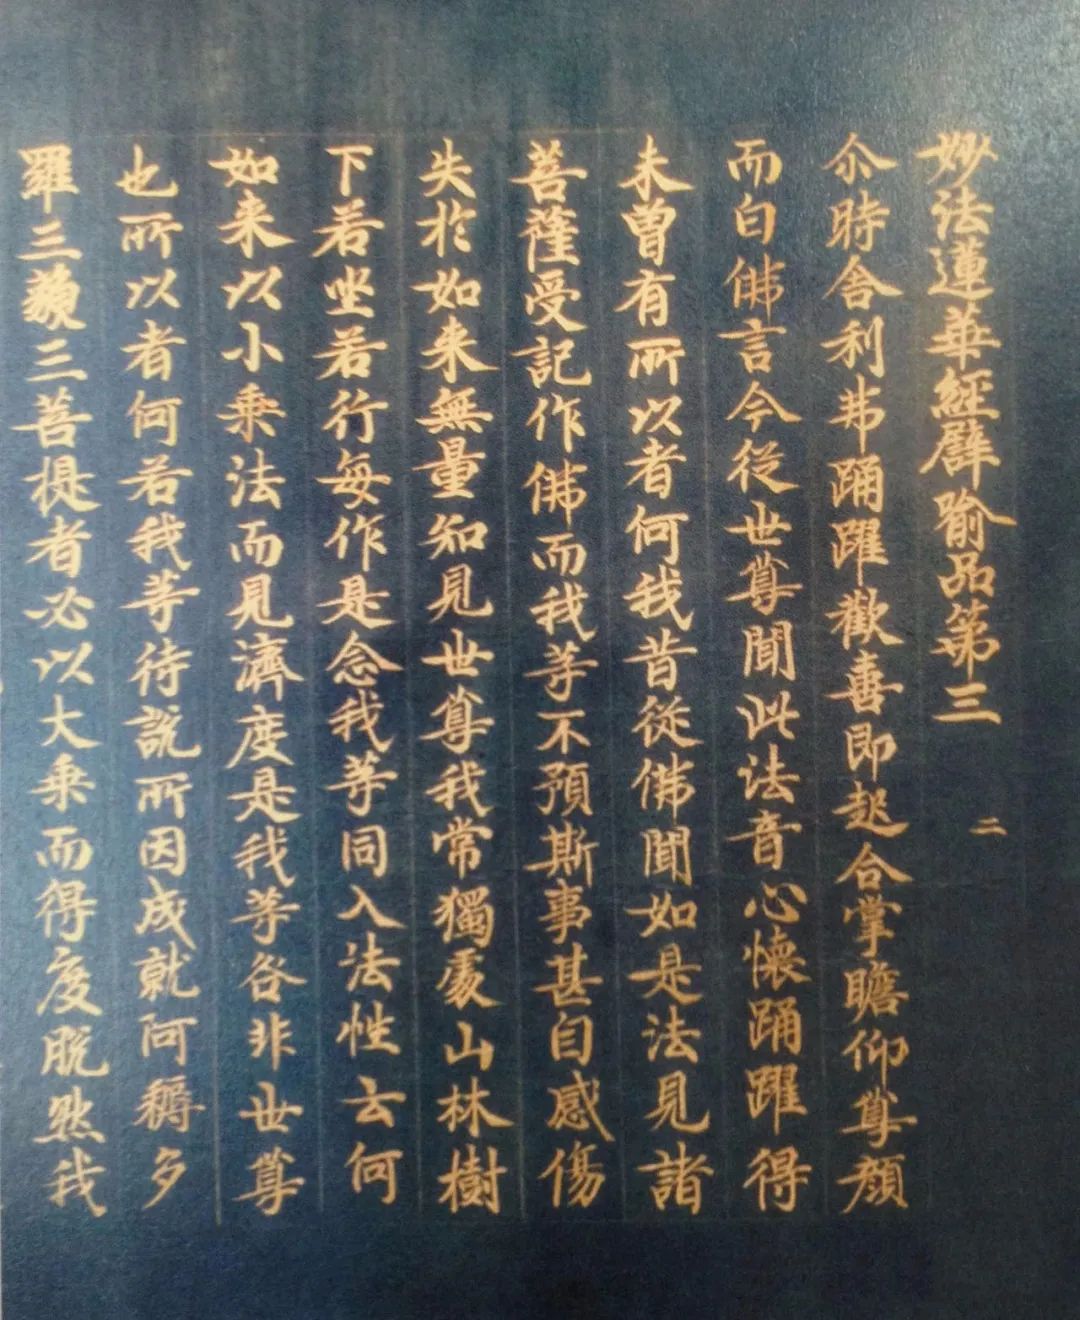 妙法蓮華經譬喻品第三 二
尒時舎利弗踊躍歡喜即起合掌瞻仰尊顔
而白佛言今從世尊聞此法音心懐踊躍得
未曽有所以者何我昔從佛聞如是法見諸
菩薩受記作佛而我等不預斯事甚自感傷
失於如来無量知見世尊我常獨處山林樹
下若坐若行每作是念我等同入法性云何
如来以小乗法而見濟度是我等咎非世尊
也所以者何若我等待說所因成就阿耨多
羅三藐三菩提者必以大乗而得度脫然我